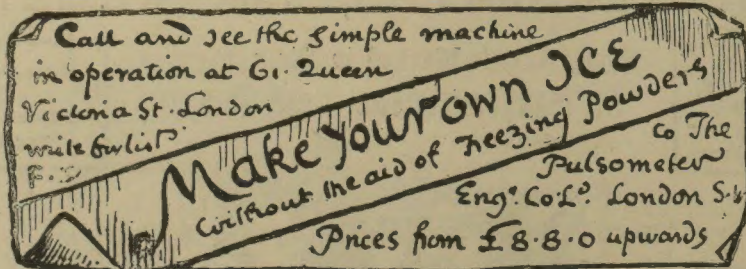 Call and see the simple machine
in operation at 61. Queen
Victoria St. London
write for list
Make Your Own ICE
without the aid of Freezing Powders
to The
Pulsometer
Engr. Co. Ld. London S.
Prices from £8.8.0 upwards